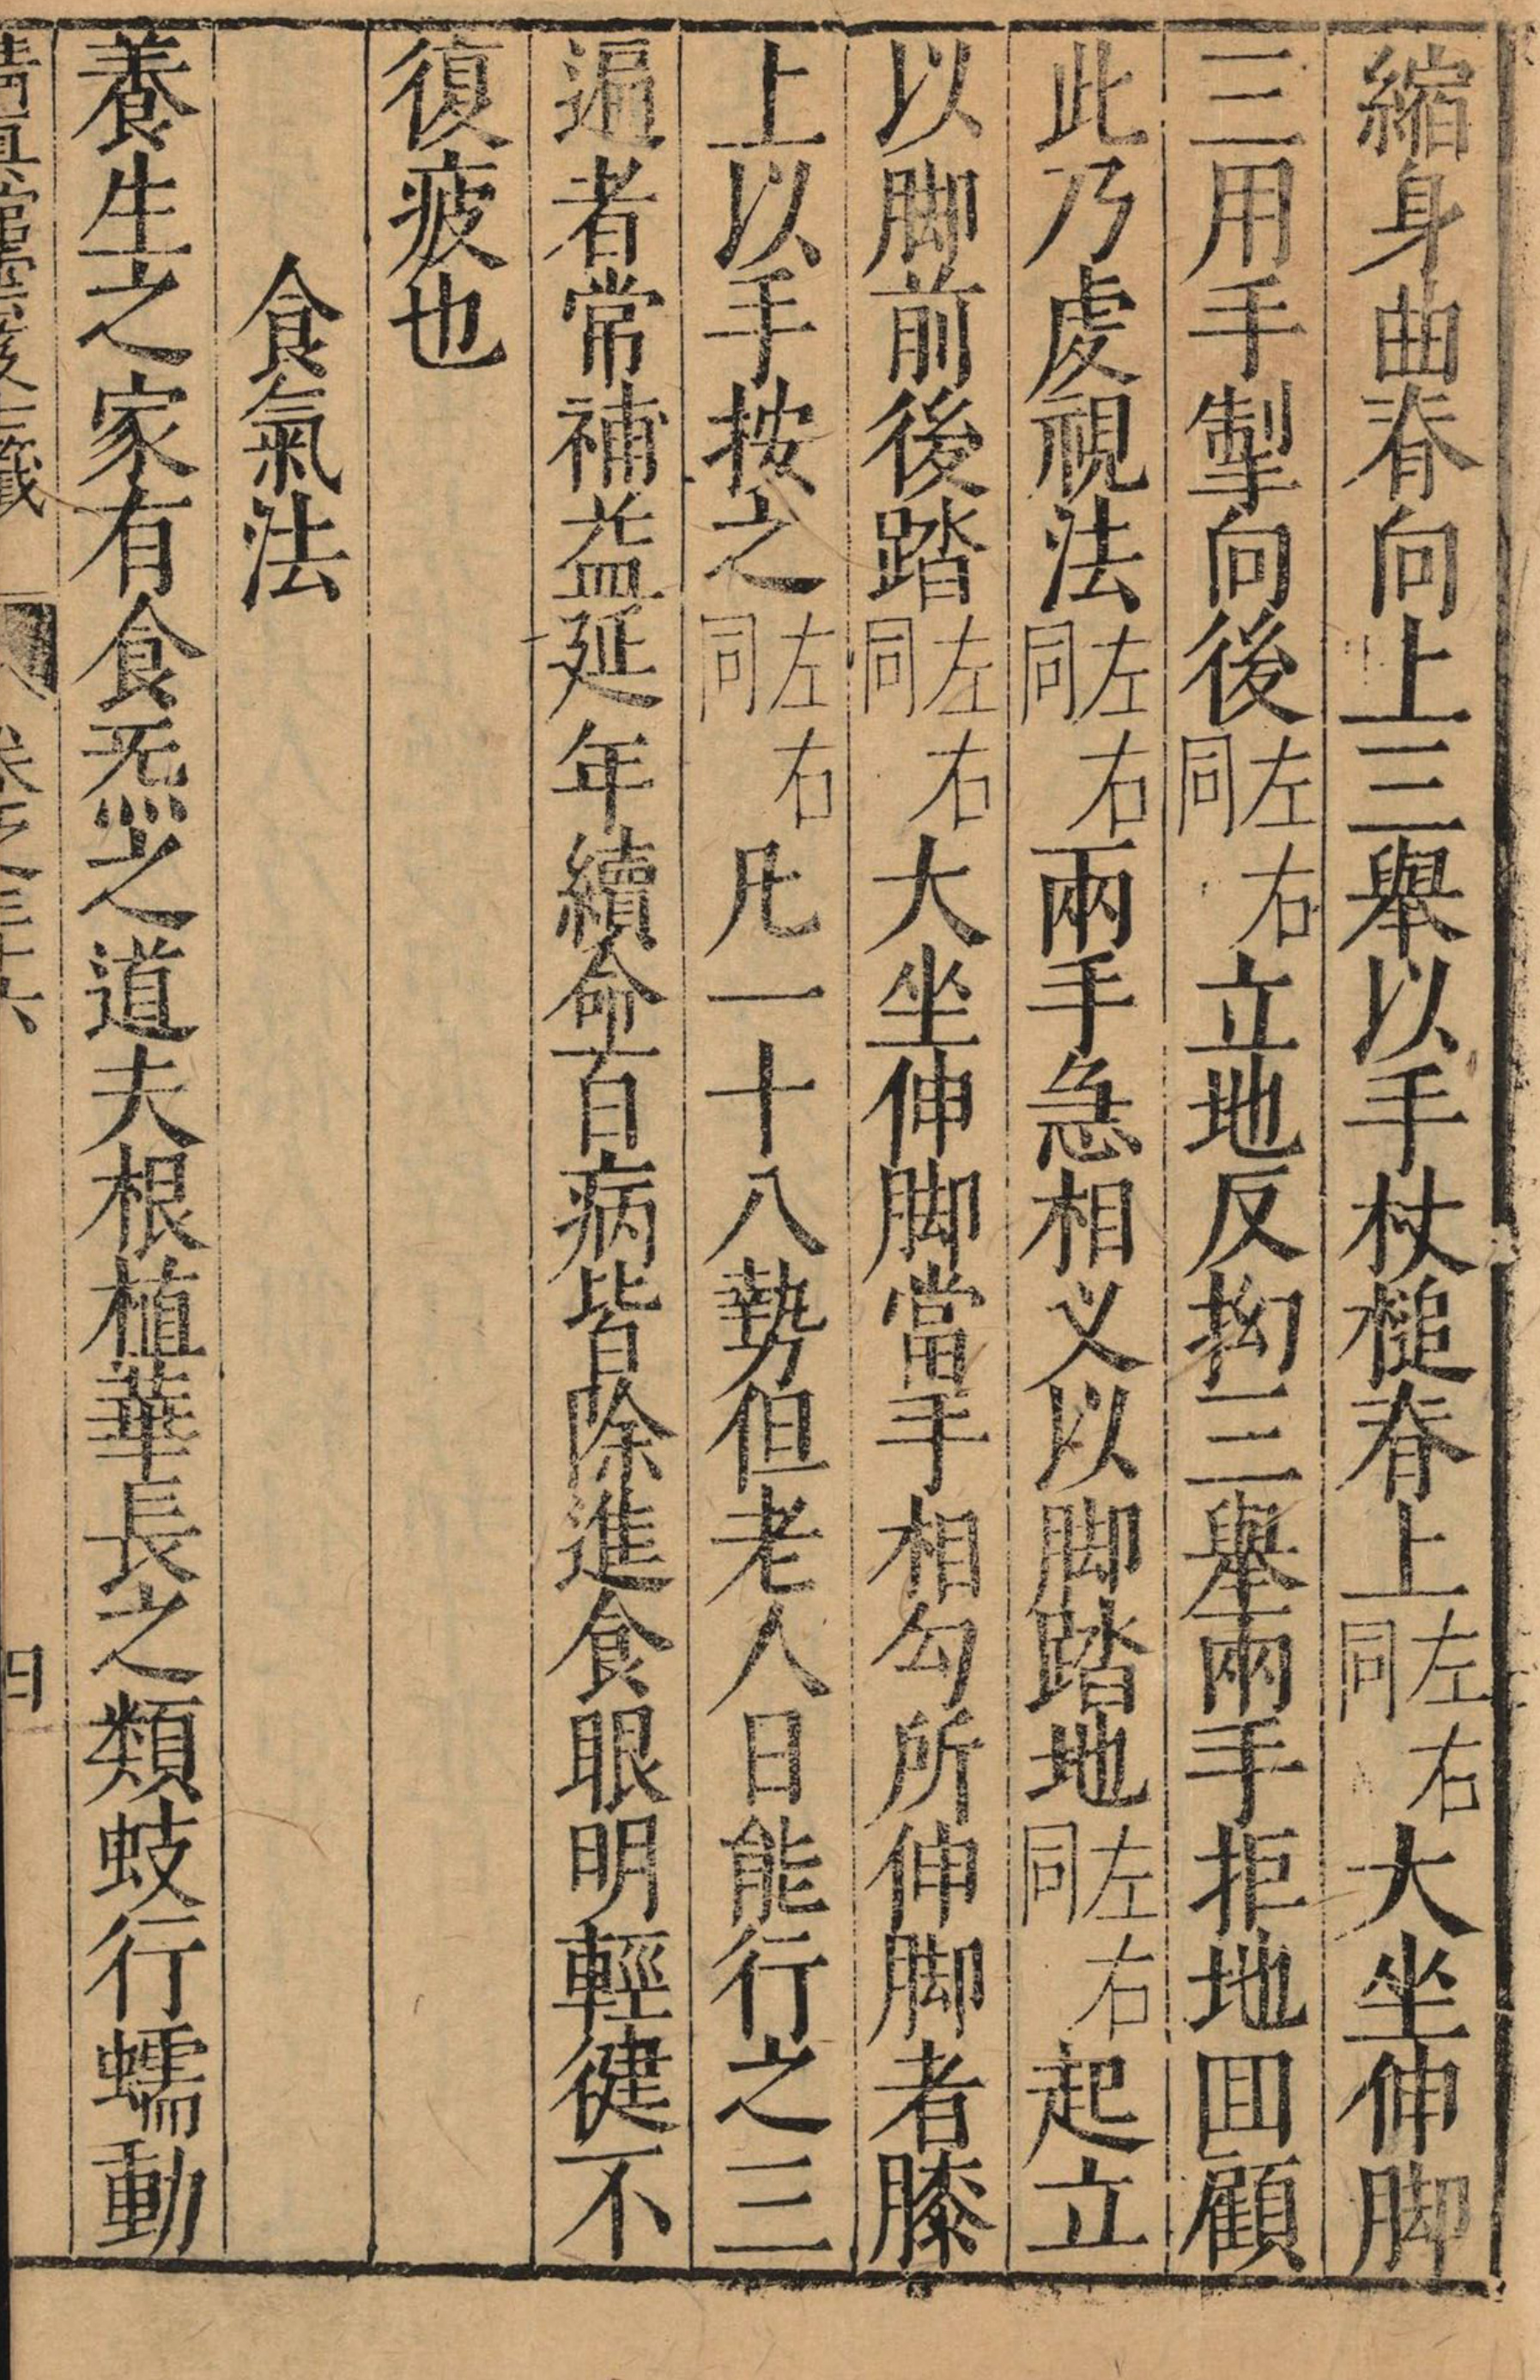 縮身曲脊向上三舉以手杖槌脊上左右同大坐伸脚
三用手掣向後左右同立地反拗三舉兩手拒地回顧
此乃虙視法左右同兩手急相义以脚踏地左右同起立
以脚前後踏左右同大坐伸脚當手相勾所伸脚者膝
上以手按之左右同凡一十八勢但老人日能行之三
遍者常補益延年續命百病皆除進食眼明輕健不
復疲也
食氣法
養生之家有食炁之道夫根植華長之類蚑行蠕動
卷之三十六